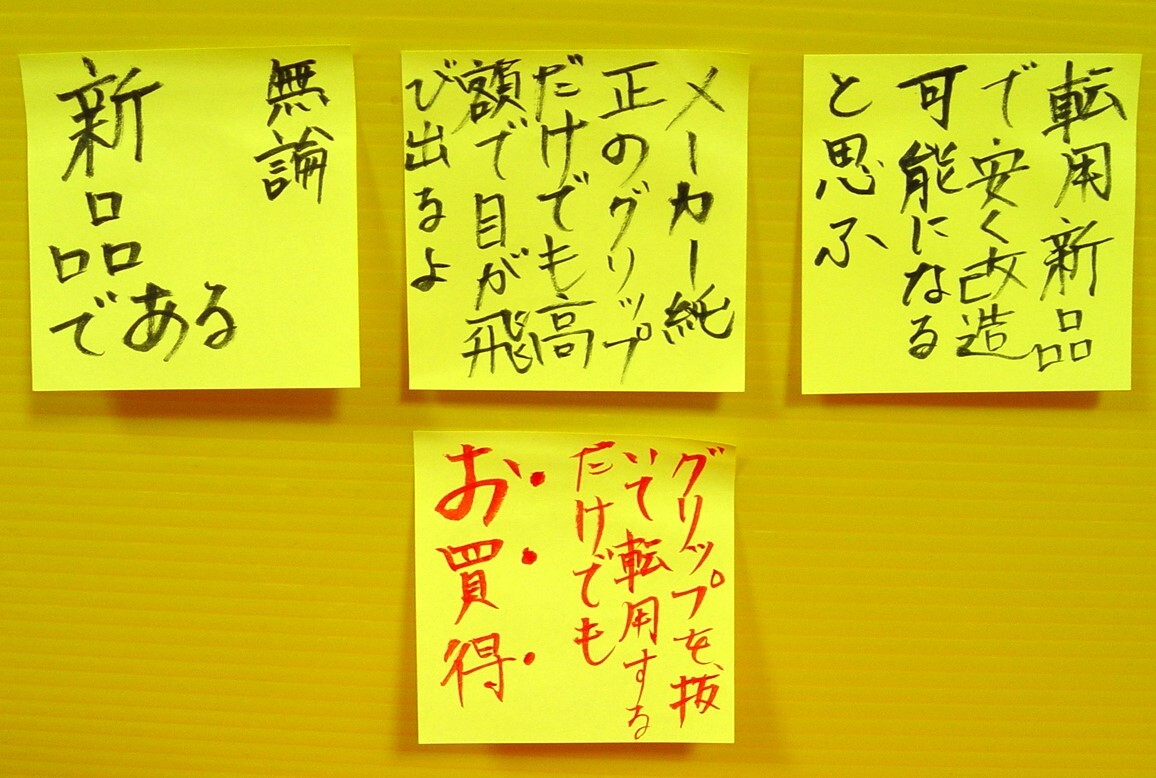 転用新品
で安く改造
可能になる
と思ふ
メーカー純
正のグリップ
だけでも高
額で目が飛
び出るよ
無論
新品
である
グリップを抜
いて転用する
だけでも
お買得